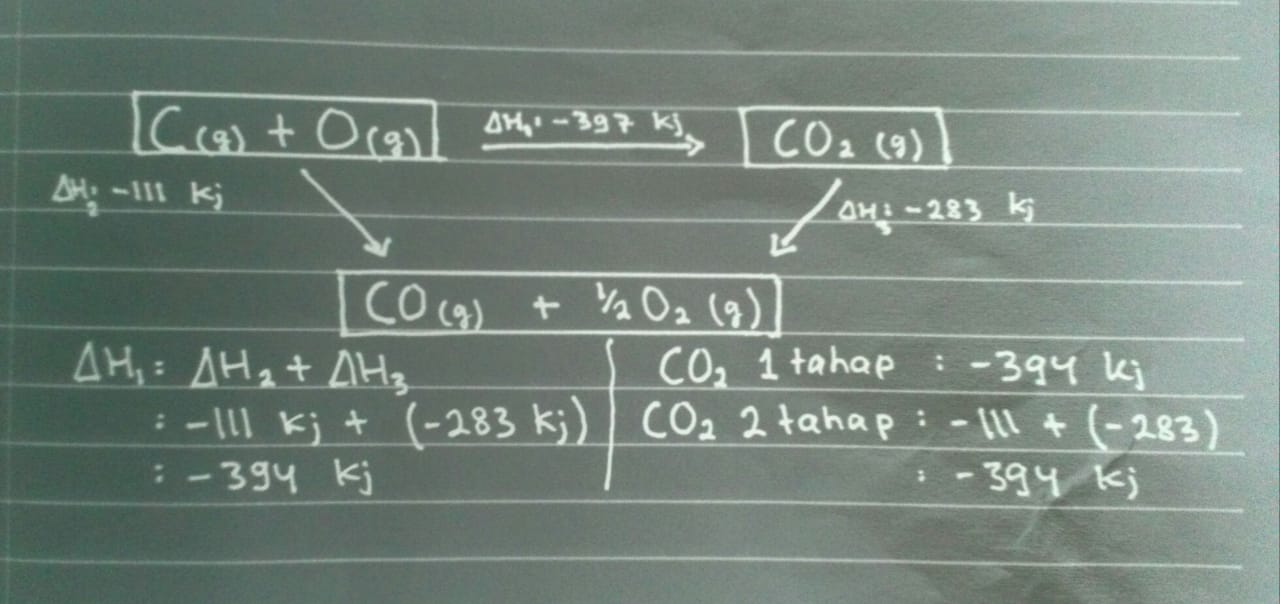 C(g) + O(g) ΔH₁: -397 kj CO₂ (g)
ΔH₂: -111 kj
ΔH₃: -283 kj
CO(g) + ½ O₂ (g)
ΔH₁ : ΔH₂ + ΔH₃
: -111 kj + (-283 kj)
: -394 kj
CO₂ 1 tahap : -394 kj
CO₂ 2 tahap : -111 + (-283)
: -394 kj